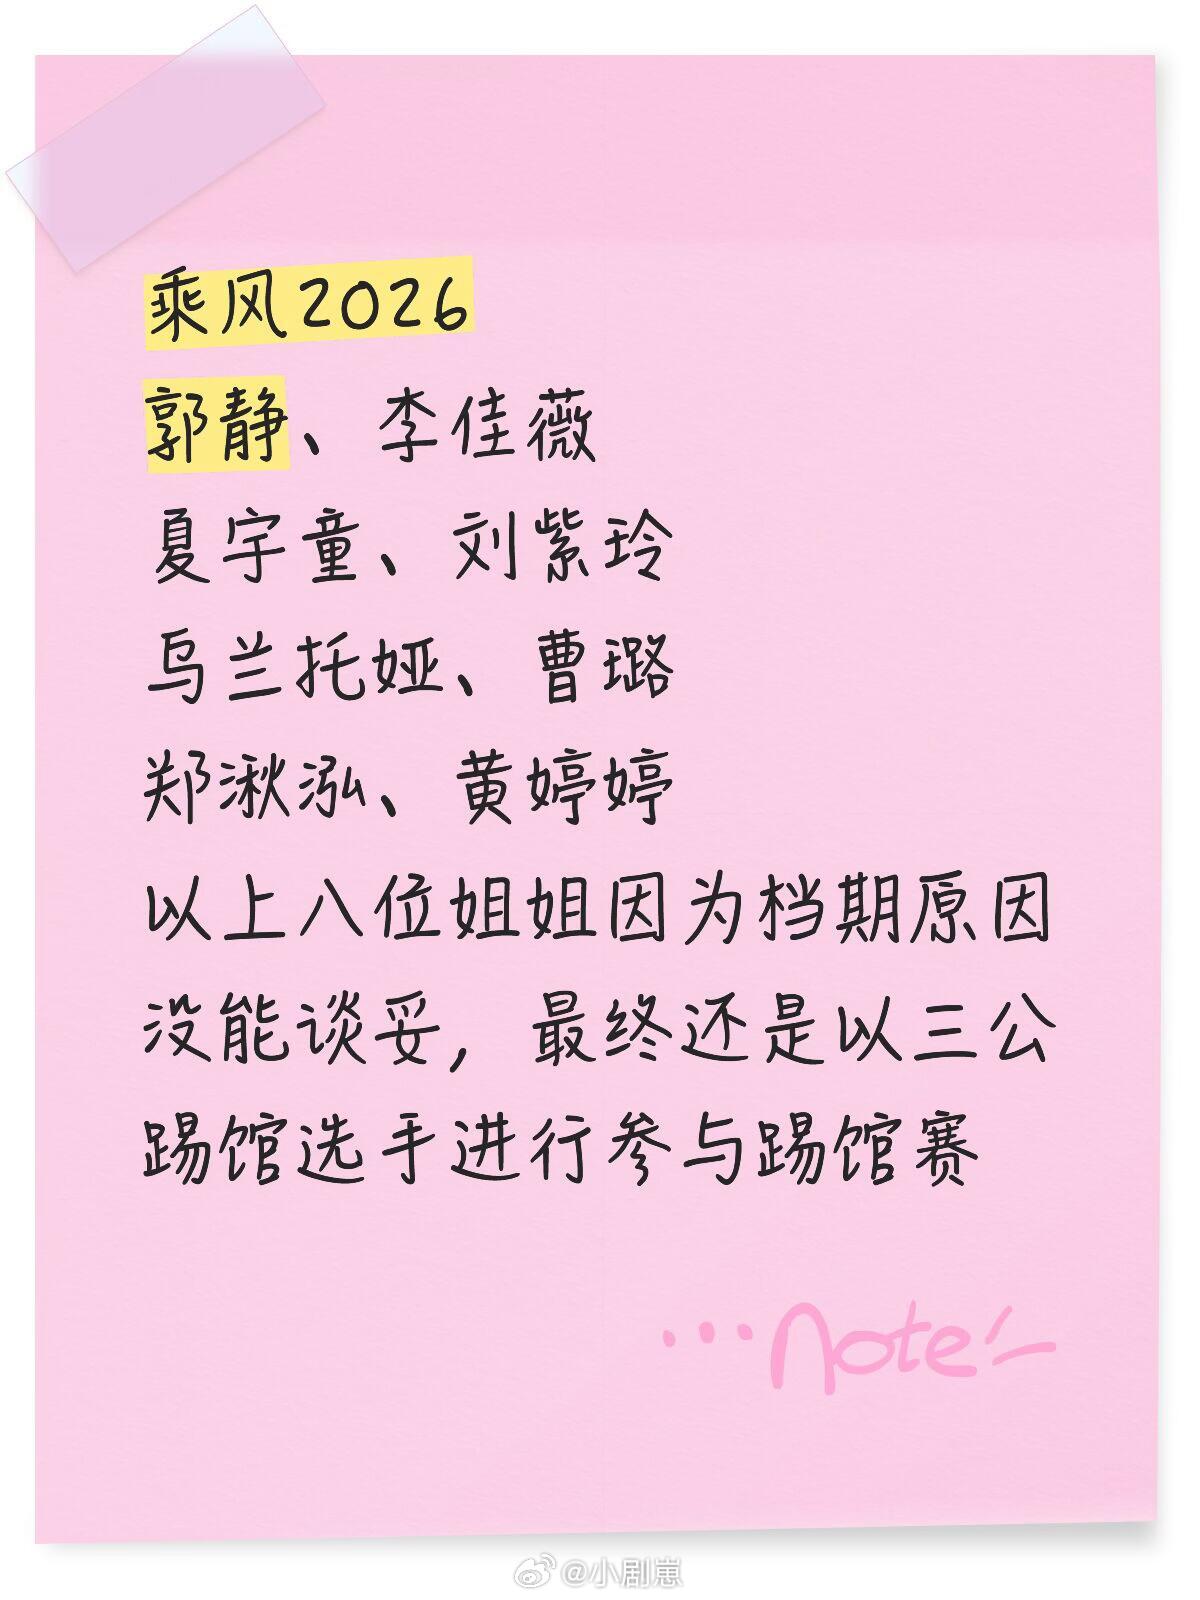 乘风2026
郭静、李佳薇
夏宇童、刘紫玲
乌兰托娅、曹璐
郑湫泓、黄婷婷
以上八位姐姐因为档期原因
没能谈妥，最终还是以三公
踢馆选手进行参与踢馆赛
···Note
@小剧崽